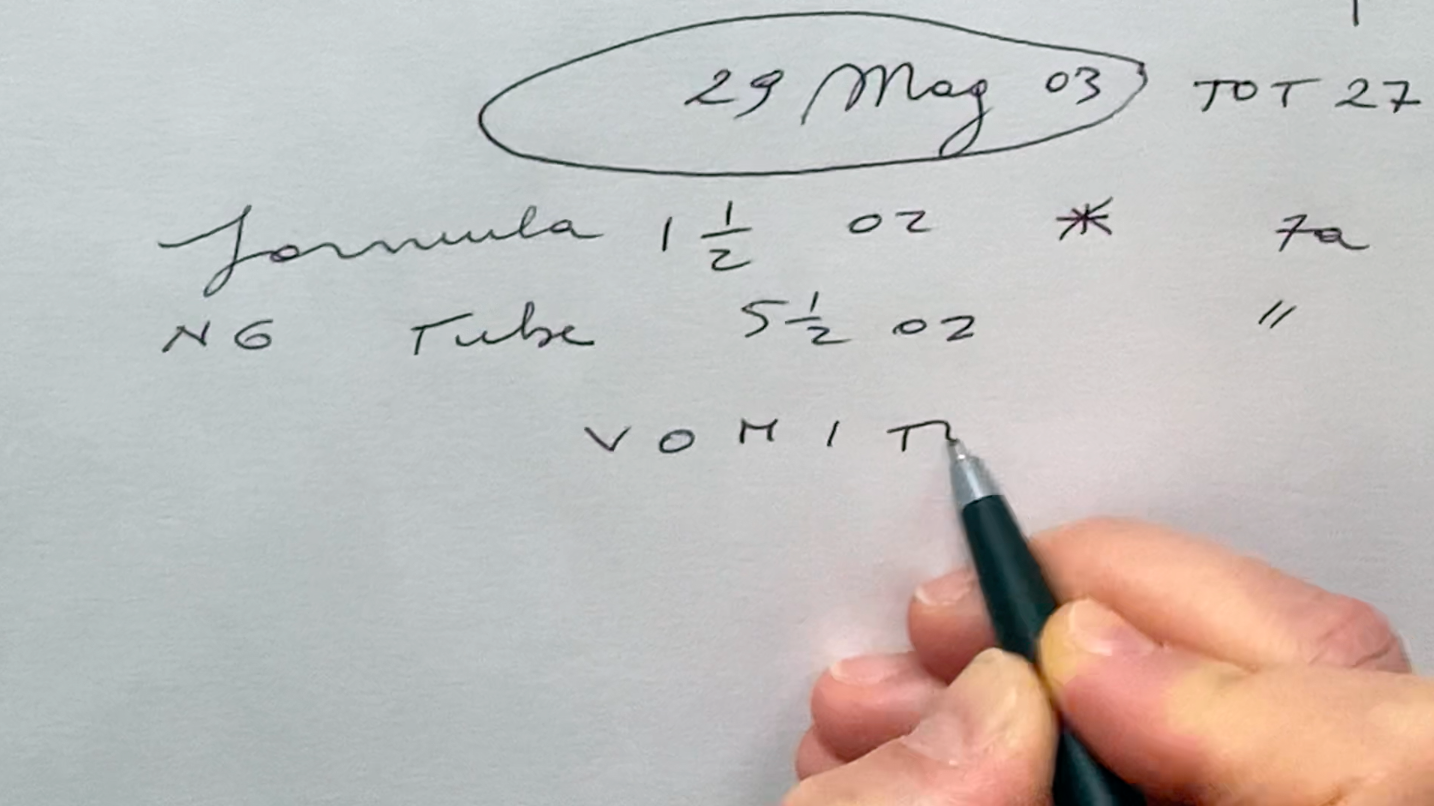 29 May 03 TOT 27
formula 1 1/2 oz * 7a
NG Tube 5 1/2 oz "
VOMIT